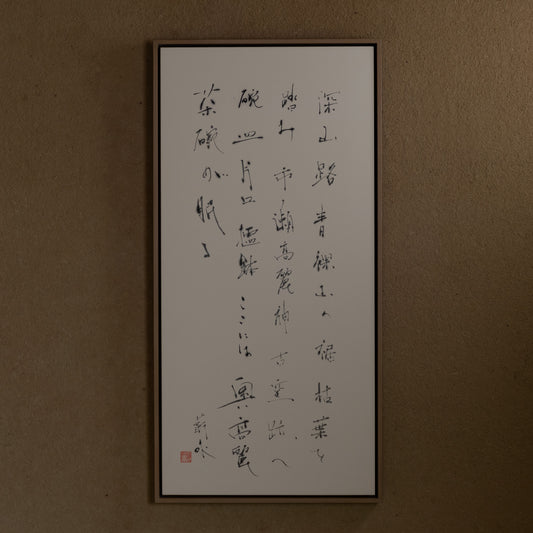 深山路青裸山の裾枯葉を
踏み市ノ瀬高麗神古窯跡へ
碗皿片口擂鉢ここには奥高麗
茶碗が眠る